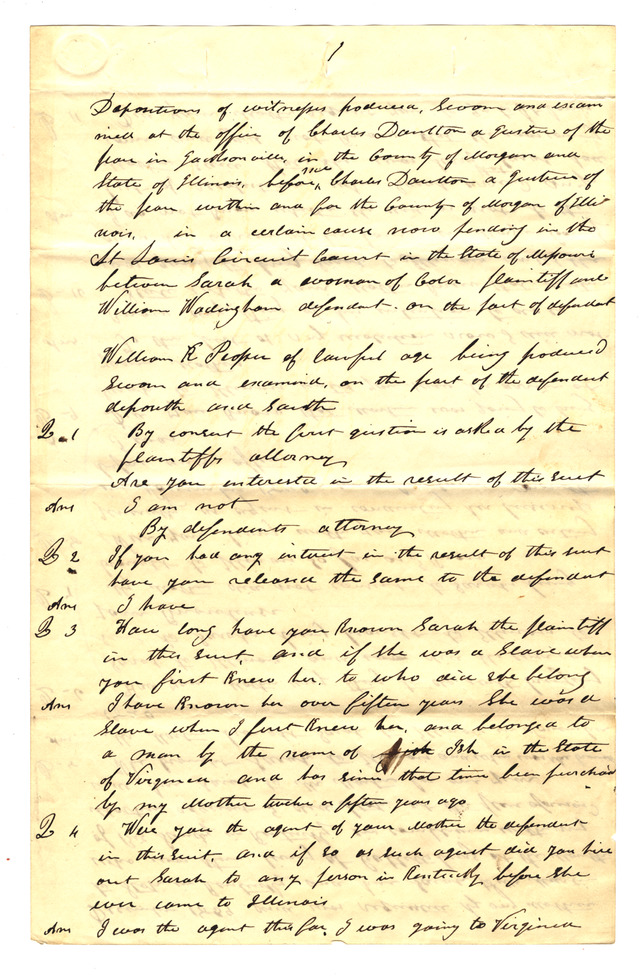 1
Depositions of witnesses produced, Sworn and exam
ined at the office of Charles Daulton a Justice of the
peace in Jacksonville, in the County of Morgan and
State of Illinois, before Charles Daulton a Justice of
the peace within and for the County of Morgan of Illi
nois, in a certain cause now pending in the
St Louis Circuit Court in the State of Missouri
between Sarah a woman of Color plaintiff and
William Wadingham defendant. on the part of defendant
William R Propper of lawful age being produced
Sworn and examined, on the part of the defendant
deposeth and Saith
Q. 1 By consent the first question is asked by the
plaintiffs attorney
Are you interested in the result of this suit
Ans I am not
By defendants attorney
Q 2 If you had any interest in the result of this suit
have you released the same to the defendant
Ans I have
Q 3 How long have you Known Sarah the plaintiff
in this suit, and if she was a Slave when
you first Knew her, to who did she belong
Ans I have Known her over fifteen years She was a
Slave when I first Knew her, and belonged to
a man by the name of Ish in the State
of Virginia and has since that time been purchased
by my Mother twelve or fifteen years ago
Q 4 Were you the agent of your Mother the defendant
in this suit, and if so as such agent did you hire
out Sarah to any person in Kentucky before she
ever came to Illinois
Ans I was the agent thus far, I was going to Virginia